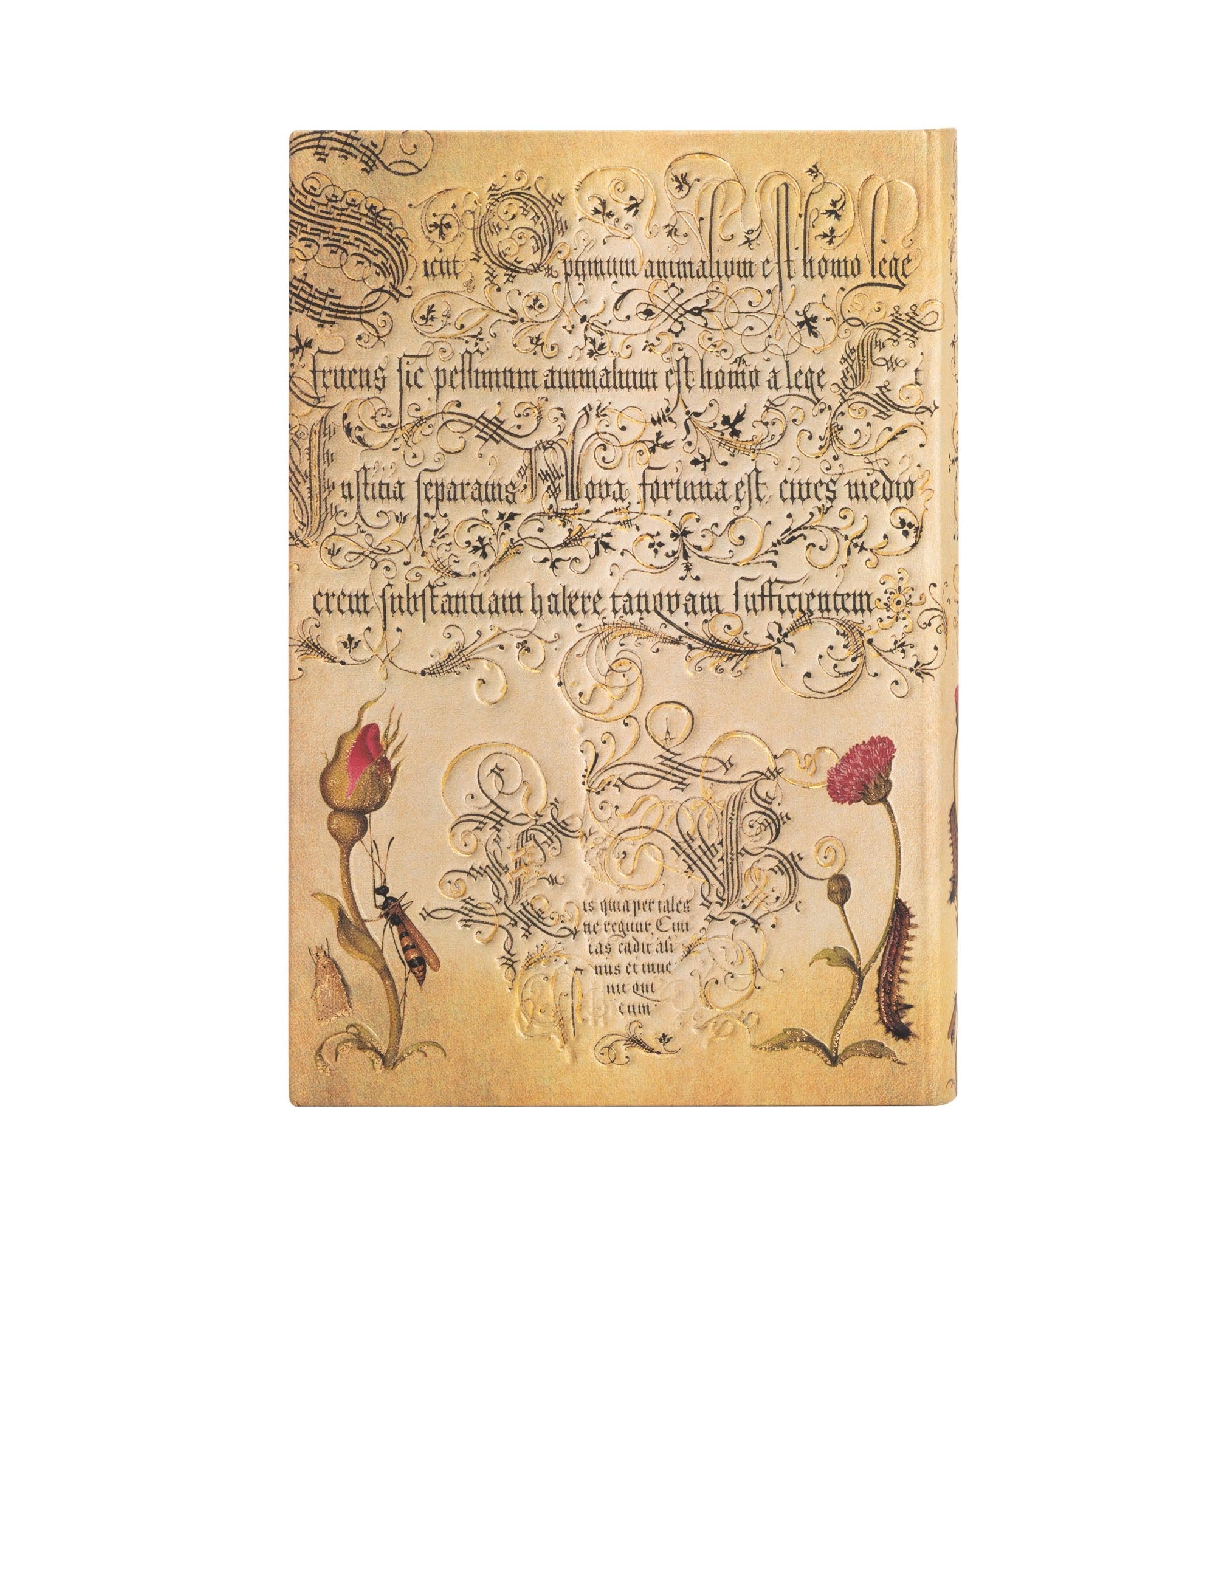 Sicut Optimum animalium est homo lege
fruens sic pessimum animalium est homo a lege Et
Iustitia separatus Nova fortuna est, cives medio
crem substantiam habere tanquam sufficientem
is quia per tales
ne regitur Civi
tas cadit ali
nus et inve
nit qui
cum